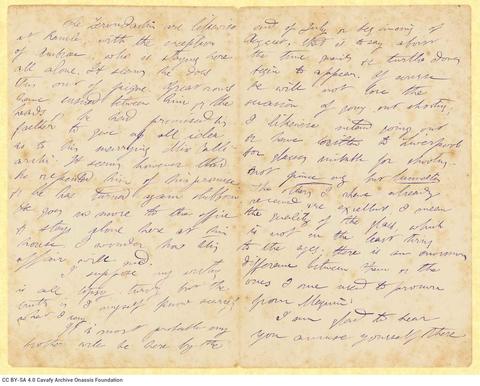 The Zerondachi are likewise
at Ramleh, with the exception
of                 who is staying here
all alone. It seems he does
this out of pique. Great rows
have ensued between him & the
         he had promised his
father to give up all idea
as to his marrying Miss
         It seems however that
he repented him of his promise
& he has turned again stubborn
He goes no more to the office
& stays alone here at his
house. I wonder how this
affair will end.
I suppose my writing
is all topsy turvy but the
truth is I myself know scarcely
what I say.
It is most probable my
brother will be here by the
end of July or beginning of
August, that is to say about
the time quails & turtle doves
begin to appear. Of course
he will not lose the
occasion of going out shooting.
I likewise intend going out
& have written to Liverpool
for glasses suitable for shooting
not pince nez but lunettes
The others I have already
received are excellent I mean
the quality of the glass, which
is not in the least tiring
to the eyes, there is an enormous
difference between them & the
ones I one used to procure
from
I am glad to hear
you amuse yourself there
CC BY-SA 4.0 Cavafy Archive Onassis Foundation